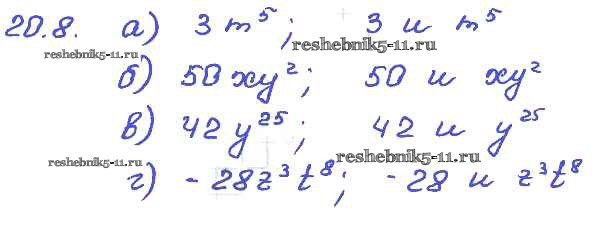 20.8. а) 3m⁵; 3 и m⁵
reshebnik5-11.ru
reshebnik5-11.ru
б) 50xy²; 50 и xy²
в) 42y²⁵; 42 и y²⁵
reshebnik5-11.ru
reshebnik5-11.ru
г) -28z³t⁸; -28 и z³t⁸